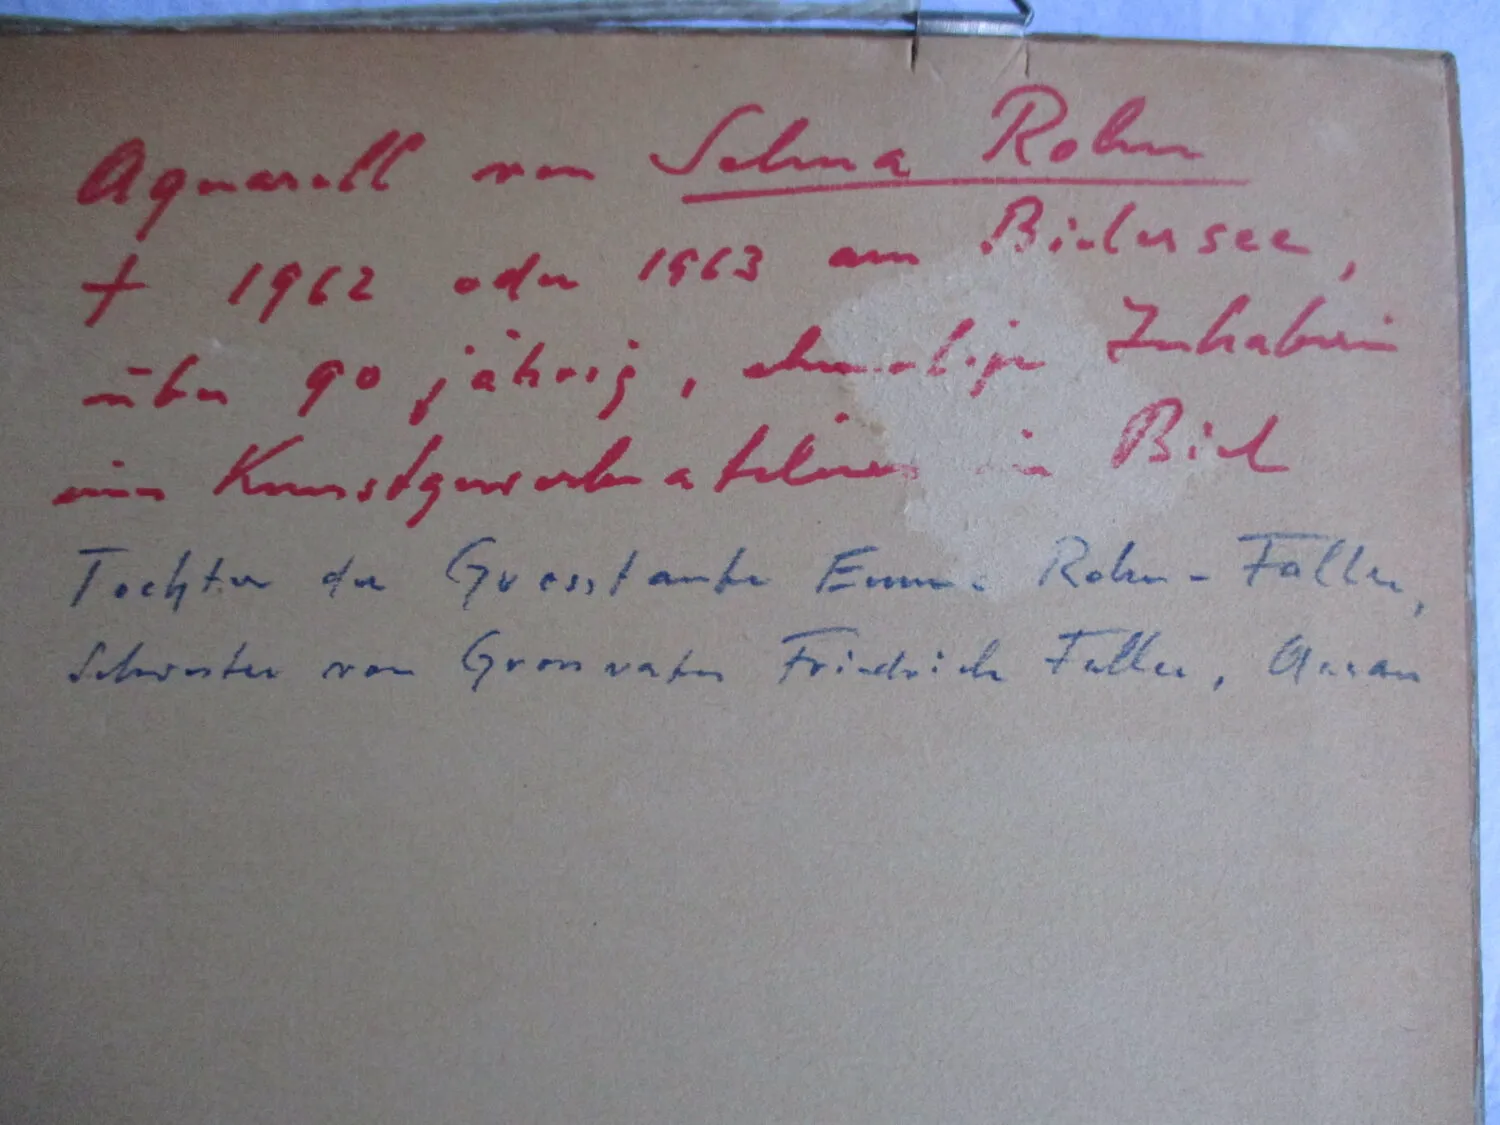 Aquarell von Selma Rohn
† 1962 oder 1963 am Bielersee,
über 90 jährig, ehemalige Inhaberin
eines Kunstgewerbeateliers in Biel
Tochter der Grosstante Emma Rohn-Faller,
Schwester von Grossvater Friedrich Faller, Aarau